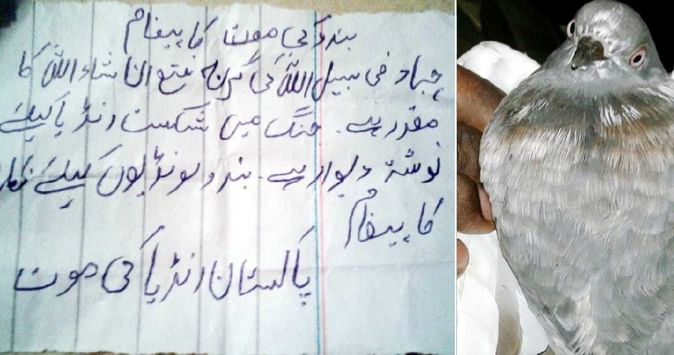 ہندو کی موت کا پیغام
جہاد فی سبیل اللہ کی فتح انشاء اللہ کا
مقدر ہے۔ جنگ میں شکست انڈیا کیلئے
نوشتہ دیوار ہے۔ ہندو لونڈیوں کیلئے
کا پیغام
پاکستان انڈیا کی موت